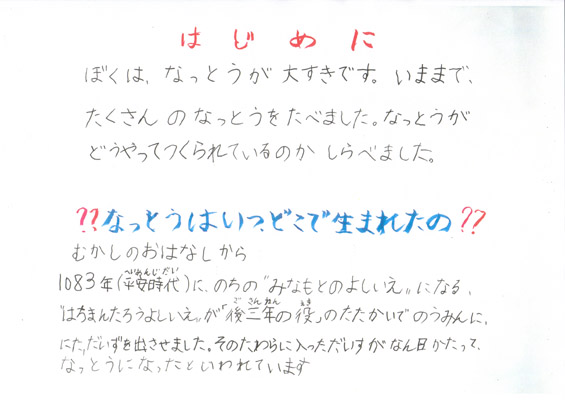 はじめに
ぼくは、なっとうが大すきです。いままで、
たくさんのなっとうをたべました。なっとうが
どうやってつくられているのかしらべました。
??なっとうはいつ、どこで生まれたの??
むかしのおはなしから
へいあんじだい
1083年(平安時代)に、のちの“みなもとのよしいえ”になる、
ご さんねん えき
“はちまんたろうよしいえ”が「後三年の役」のたたかいでのうみんに、
にた、だいずを出させました。そのたわらに入っただいずがなん日かたって、
なっとうになったといわれています